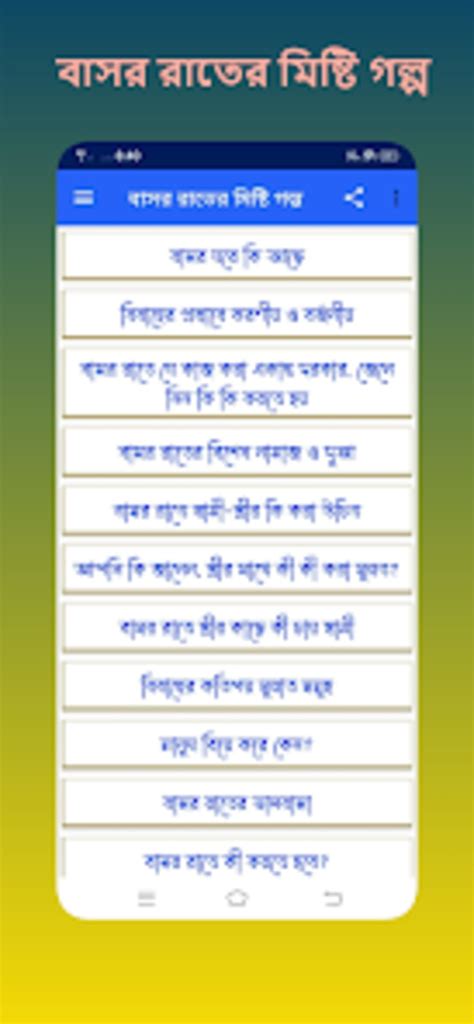 বাসর রাতের মিষ্টি গল্প
বাসর রাতের মিষ্টি গল্প
বাসর রাতে কি আছে
বিবাহের প্রস্তাবে করণীয় ও বর্জনীয়
বাসর রাতে যে কাজ করা একান্ত দরকার. জেনে
নিন কি কি করতে হয়
বাসর রাতের বিশেষ নামাজ ও দুআ
বাসর রাতে স্বামী-স্ত্রীর কি করা উচিত
আপনি কি জানেন, স্ত্রীর সাথে কী কী করা সুন্নত?
বাসর রাতে স্ত্রীর কাছে কী চায় স্বামী
বিবাহের কতিপয় সুন্নত সমূহ
মানুষ বিয়ে করে কেন?
বাসর রাতের ভালবাসা
বাসর রাতে কী করতে হবে?